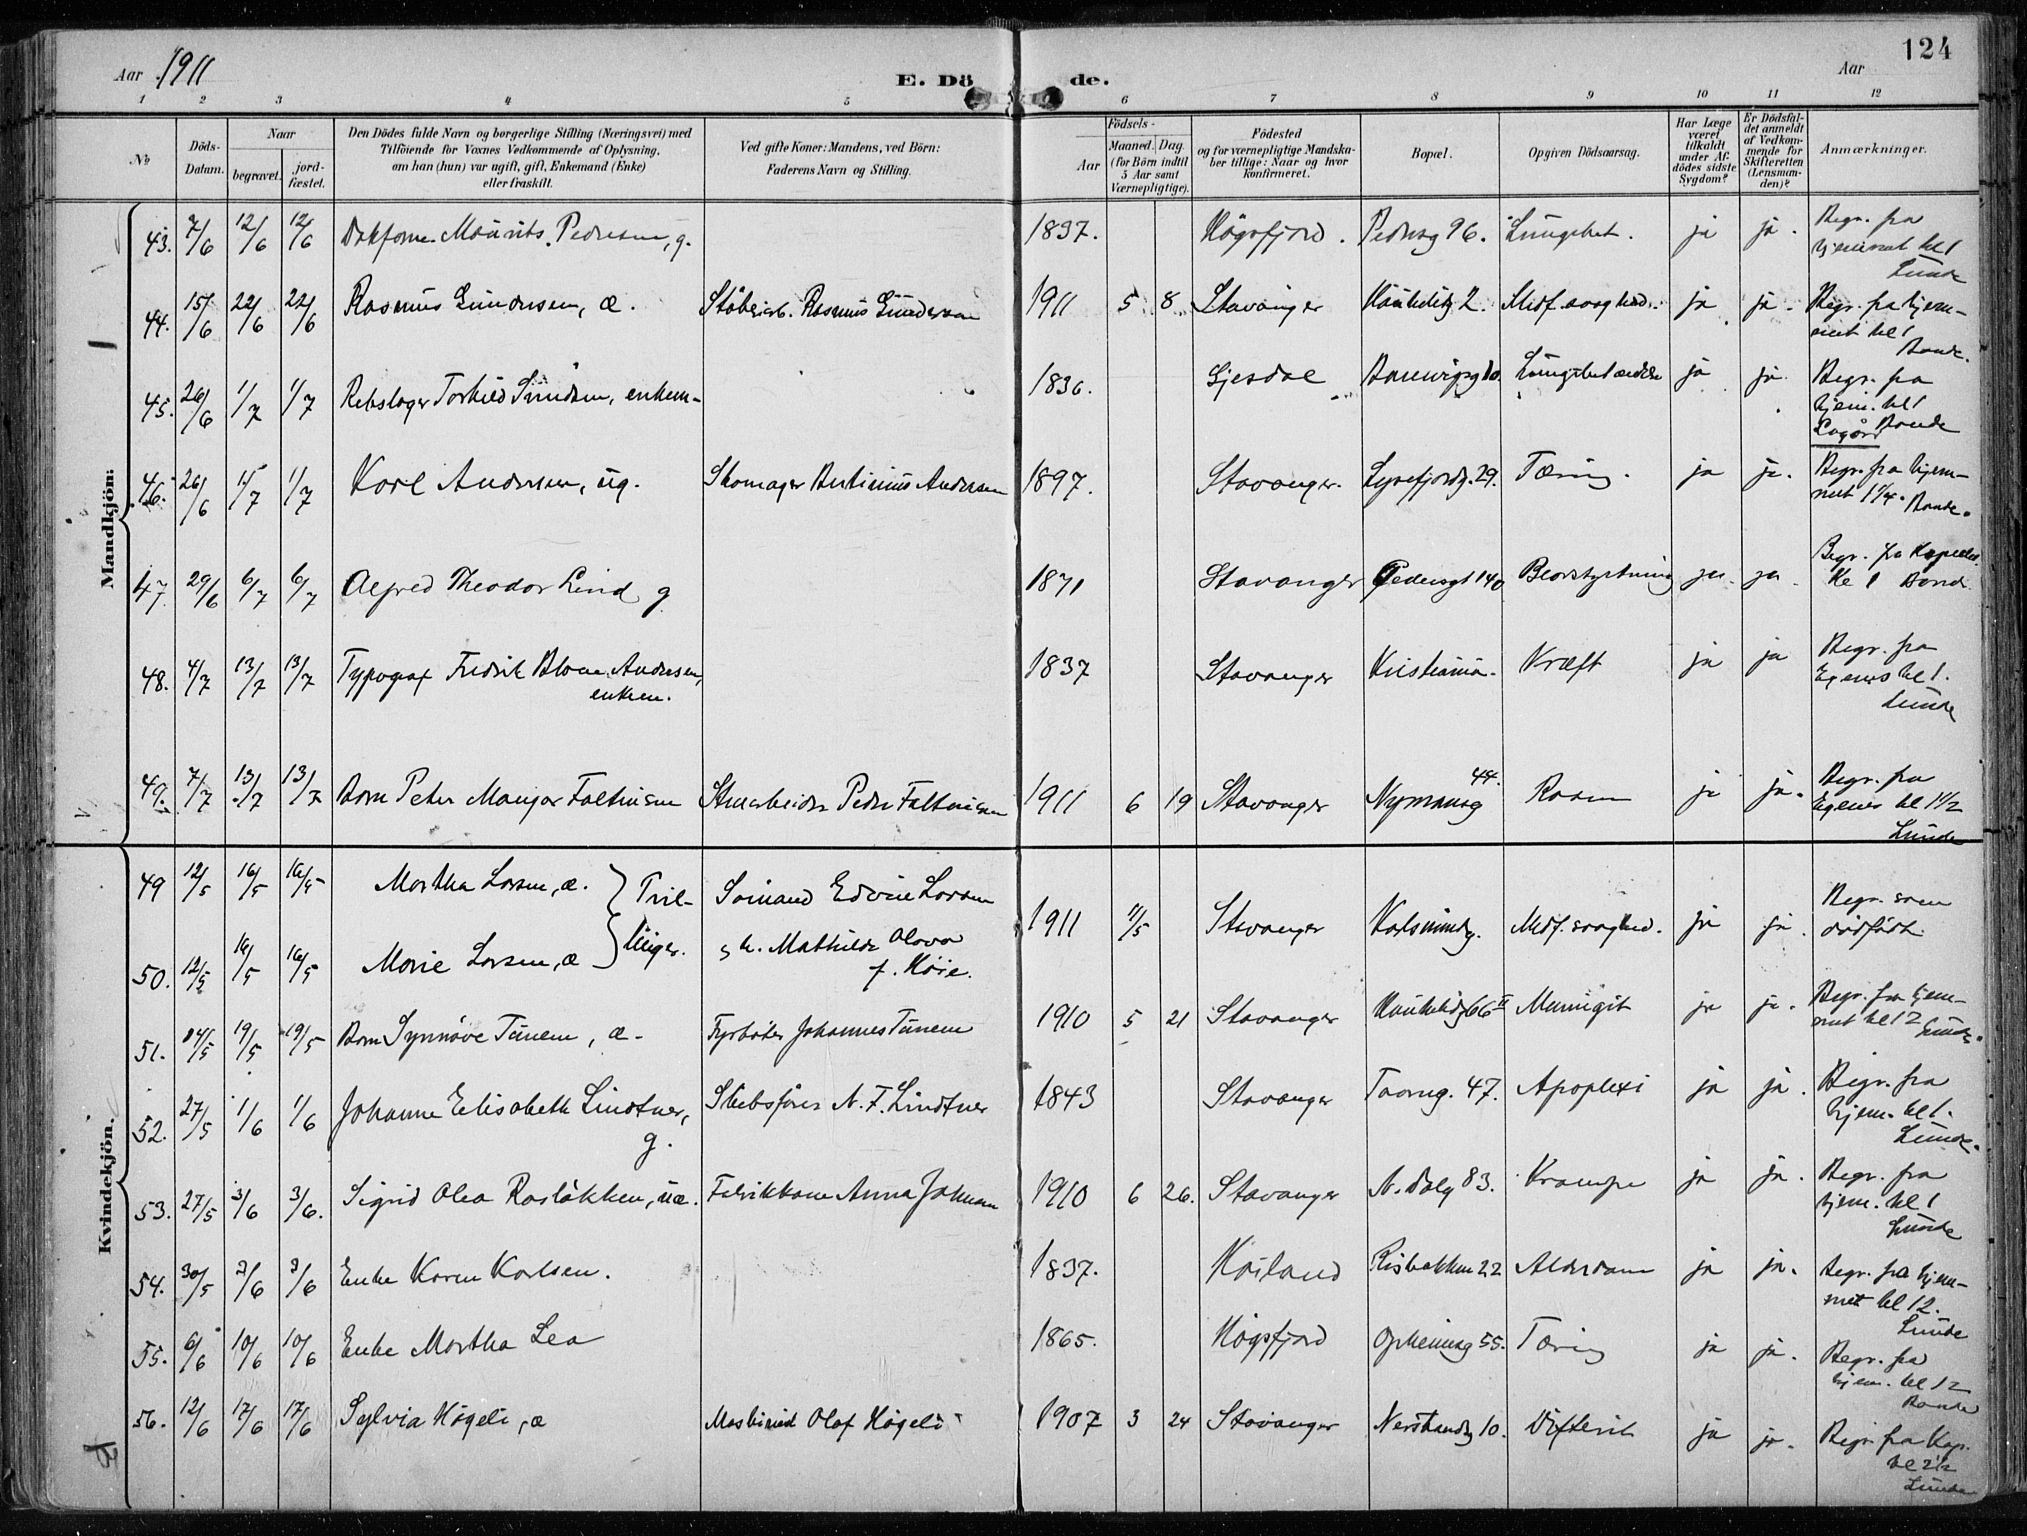 Aar 1911
E. Dö de.
Aar 124
1 2 3 4 5 6 7 8 9 10 11 12
No
Döds-
Datum.
Naar
begravet.
jord-
fæstet.
Den Dödes fulde Navn og borgerlige Stilling (Næringsvei) med
Tilföiende for Voxnes Vedkommende af Oplysning,
om han (hun) var ugift, gift, Enkemand (Enke)
eller fraskilt.
Ved gifte Koner: Mandens, ved Börn:
Faderens Navn og Stilling.
Födsels-
Aar
Maaned. Dag.
(for Börn indtil
5 Aar samt
Værnepligtige).
Födested
og for værnepligtige Mandska-
ber tillige: Naar og hvor
konfirmeret.
Bopæl.
Opgiven Dödsaarsag.
Har Læge
været
tilkaldt
under Af-
dödes sidste
Sygdom?
Er Dödsfal-
det anmeldt
af Vedkom-
mende for
Skifteretten
(Lensman-
den)?
Anmærkninger.
Mandkjön:
43. 7/6 12/6 12/6 Mauritz Pedersen, g. 1837. Högsfjord. Pedersg 96. ja ja. Begr. fra
hjemmet kl 1
Lunde
44. 15/6 22/6 22/6 Rasmus Gundersen, æ. Støberiarb. Rasmus Gundersen 1911 5 8 Stavanger 2. Medf. svaghed. ja ja. Begr. fra hjem-
met kl 1
45. 26/6 1/7 1/7 Rebslager Torkild enkem- 1836. Gjesdal ja ja. Begr. fra
hjem. kl 1
Lagård
46. 26/6 1/7 1/7 Karl Andersen, ug. Skomager Bertinius Andersen 1897. Stavanger. Lysefjordg. 29. Tæring. ja ja. Begr. fra hjem-
met
47. 29/6 6/7 6/7 Alfred Theodor Lind g 1871 Stavanger Pedersgt 140 ja. ja. Begr. fra Kapellet
kl 1
48. 4/7 13/7 13/7 Typograf Fredrik Blom Andersen,
enkem.
1837 Stavanger Kristiania. Kræft ja ja Begr. fra
Egenes kl 1.
Lunde
49. 7/7 13/7 13/7 Barn Peter Mangor Faltinsen Peder Faltinsen 1911 6 19 Stavanger Nymansg 44. ja ja. Begr. fra
Egenes kl 1 1/2
Lunde
Kvindekjön.
49 12/5 16/5 16/5 Martha Larsen, æ. Tvil- Sömand Edvin Larsen 1911 11/5 Stavanger Karlsmindeg. Medf. svaghed. ja ja. Begr. som
dödfödt.
50. 12/5 16/5 16/5 Marie Larsen, æ linger. h. Mathilde Olava
f. Høie.
51. 14/5 19/5 19/5 Barn Synnöve Tunem, æ. Fyrböter Johannes Tunem 1910 5 21 Stavanger 66 II ja ja. Begr. fra hjem-
met kl 12 Lunde.
52. 27/5 1/6 1/6 Johanne Elisabeth Lindtner,
g.
Skibsfører N. F. Lindtner 1843 Stavanger Taarng. 47. Apoplexi ja ja. Begr. fra
hjem. kl 1.
Lunde.
53. 27/5 3/6 3/6. Sigrid Olea uæ. Anna 1910 6 26. Stavanger N. Dalg 83. Krampe ja ja. Begr. fra
hjem. kl 1
Lunde
54. 30/5 3/6 3/6 Enke Karen Karlsen. 1837. Høiland Risbakken 22 Alderdom ja ja. Begr. fra hjem-
met kl 12.
Lunde
55. 6/6 10/6 10/6 Enke Martha Lea 1865. Högsfjord Opheimsg 55. Tæring ja ja. Begr. fra
hjem. kl 12
56. 12/6 17/6 17/6 Sylvia Högeli, æ Maskinist Olaf Högeli 1907 3 24 Stavanger Nerstrandsg 10. Difterit ja ja. Begr. fra Kap.
kl 2 1/2
Lunde